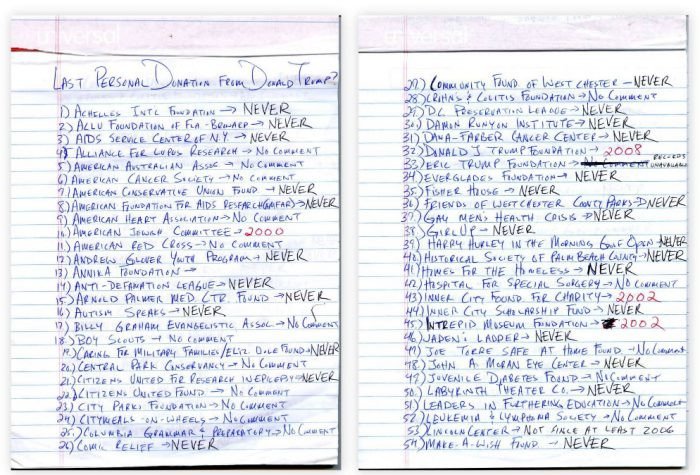 Last Personal Donation from Donald Trump?
1) Achilles Intl Foundation → NEVER
2) ACLU Foundation of Fla - Broward → NEVER
3) AIDS Service Center of NY → NEVER
4) Alliance for Lupus Research → No Comment
5) American Australian Assoc → No Comment
6) American Cancer Society → No Comment
7) American Conservative Union Fund → NEVER
8) American Foundation for AIDS Research (amfAR) → NEVER
9) American Heart Association → No Comment
10) American Jewish Committee → 2000
11) American Red Cross → No Comment
12) Andrew Glover Youth Program → NEVER
13) Annika Foundation →
14) Anti-Defamation League → NEVER
15) Arnold Palmer Med Ctr. Fund → NEVER
16) Autism Speaks → NEVER
17) Billy Graham Evangelistic Assoc. → No Comment
18) Boy Scouts → No Comment
19) Caring for Military Families/Eliz. Dole Found → NEVER
20) Central Park Conservancy → No Comment
21) Citizens United for Research in Epilepsy → NEVER
22) Citizens United Found → No Comment
23) City Parks Foundation → No Comment
24) Citymeals-on-Wheels → No Comment
25) Columbia Grammar & Preparatory → No Comment
26) Comic Relief → NEVER
universal
27) Community Found of Westchester → NEVER
28) Crohn's & Colitis Foundation → No Comment
29) DC Preservation League → NEVER
30) Damon Runyon Institute → NEVER
31) Dana-Farber Cancer Center → NEVER
32) Donald J Trump Foundation → 2008
33) Eric Trump Foundation → No Comment Records Unavailable
34) Everglades Foundation → NEVER
35) Fisher House → NEVER
36) Friends of Westchester County Parks → NEVER
37) Gay Men's Health Crisis → NEVER
38) Girl Up → NEVER
39) Harry Hurley in the Morning Golf Open → NEVER
40) Historical Society of Palm Beach County → NEVER
41) Homes for the Homeless → NEVER
42) Hospital for Special Surgery → No Comment
43) Inner City Found for Charity → 2002
44) Inner City Scholarship Fund → NEVER
45) Intrepid Museum Foundation → 2002
46) Jaden's Ladder → NEVER
47) Joe Torre Safe at Home Found → No Comment
48) John A. Moran Eye Center → NEVER
49) Juvenile Diabetes Found → No Comment
50) Labyrinth Theater Co. → NEVER
51) Leaders in Furthering Education → No Comment
52) Leukemia & Lymphoma Society → No Comment
53) Lincoln Center → Not since at least 2006
54) Make-A-Wish Found → NEVER